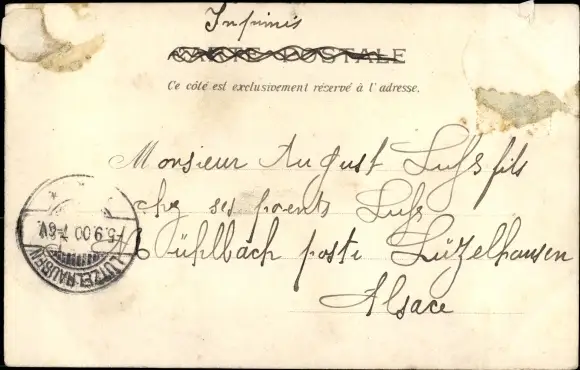 Imprimis
CARTE POSTALE
Ce côté est exclusivement réservé à l'adresse.
Monsieur August fils
chez ses parents
Mühlbach poste Lützelhausen
Alsace
LÜTZELHAUSEN
5.9.00 7-8V